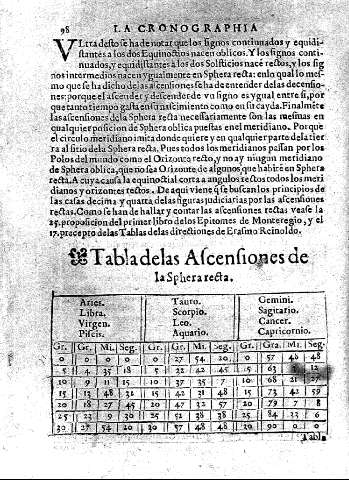 98 LA CRONOGRAPHIA
VLtra desto se ha de notar que los signos continuados y equidi-
stantes a los dos Equinoctios nacen oblicos. Y los signos conti-
nuados, y equidistantes a los dos Solsticios nacẽ rectos, y los sig
nos intermedios nacen ygualmente en Sphera recta: enlo qual lo mes-
mo que se ha dicho de las ascensiones se ha de entender de las decensio-
nes: porque el ascender y descender de vn signo es ygual entre si, por
que tanto tiempo gasta en su nascimiento como en su cayda. Finalmẽte
las ascensiones de la Sphera recta necessariamente son las mesmas en
qualquier posicion de Sphera oblica puestas en el meridiano. Porque
el circulo meridiano imita donde quiere y en qualquier parte de la tier
ra al sitio de la Sphera recta. Pues todos los meridianos passan por los
Polos del mundo como el Orizonte recto, y no ay ningun meridiano
de Sphera oblica, que no sea Orizonte de algunos, que habitẽ en Sphera
recta. A cuya causa la equinoctial corta a angulos rectos todos los meri
dianos y orizontes rectos. De aqui viene q̃ se buscan los principios de
las casas decima y quarta delas figuras judiciarias por las ascensiones
rectas. Como se han de hallar y contar las ascensiones rectas vease la
25. proposicion del primer libro delos Epitomes de Monteregio, y el
17. precepto delas Tablas delas directiones de Erasmo Reinoldo.
Tabla delas Ascensiones de
la Sphera recta.
Aries. Tauro. Gemini.
Libra. Scorpio. Sagitario.
Virgen. Leo. Cancer.
Piscis. Aquario. Capricornio.
Gr. Gr. Mi. Seg. Gr. Gr. Mi. Seg. Gr. Gra. Mi. Seg.
0 0 0 0 0 27 54 20 0 57 48 48
5 4 35 18 5 32 42 45 5 63 12
10 9 11 15 10 37 35 7 10 68 21 27
15 13 48 31 15 42 31 48 15 73 42 59
20 18 27 45 20 47 32 57 20 79 7 8
25 23 9 30 25 52 38 38 25 84 33 6
30 27 54 20 30 57 48 48 30 90 0 0
Tabla